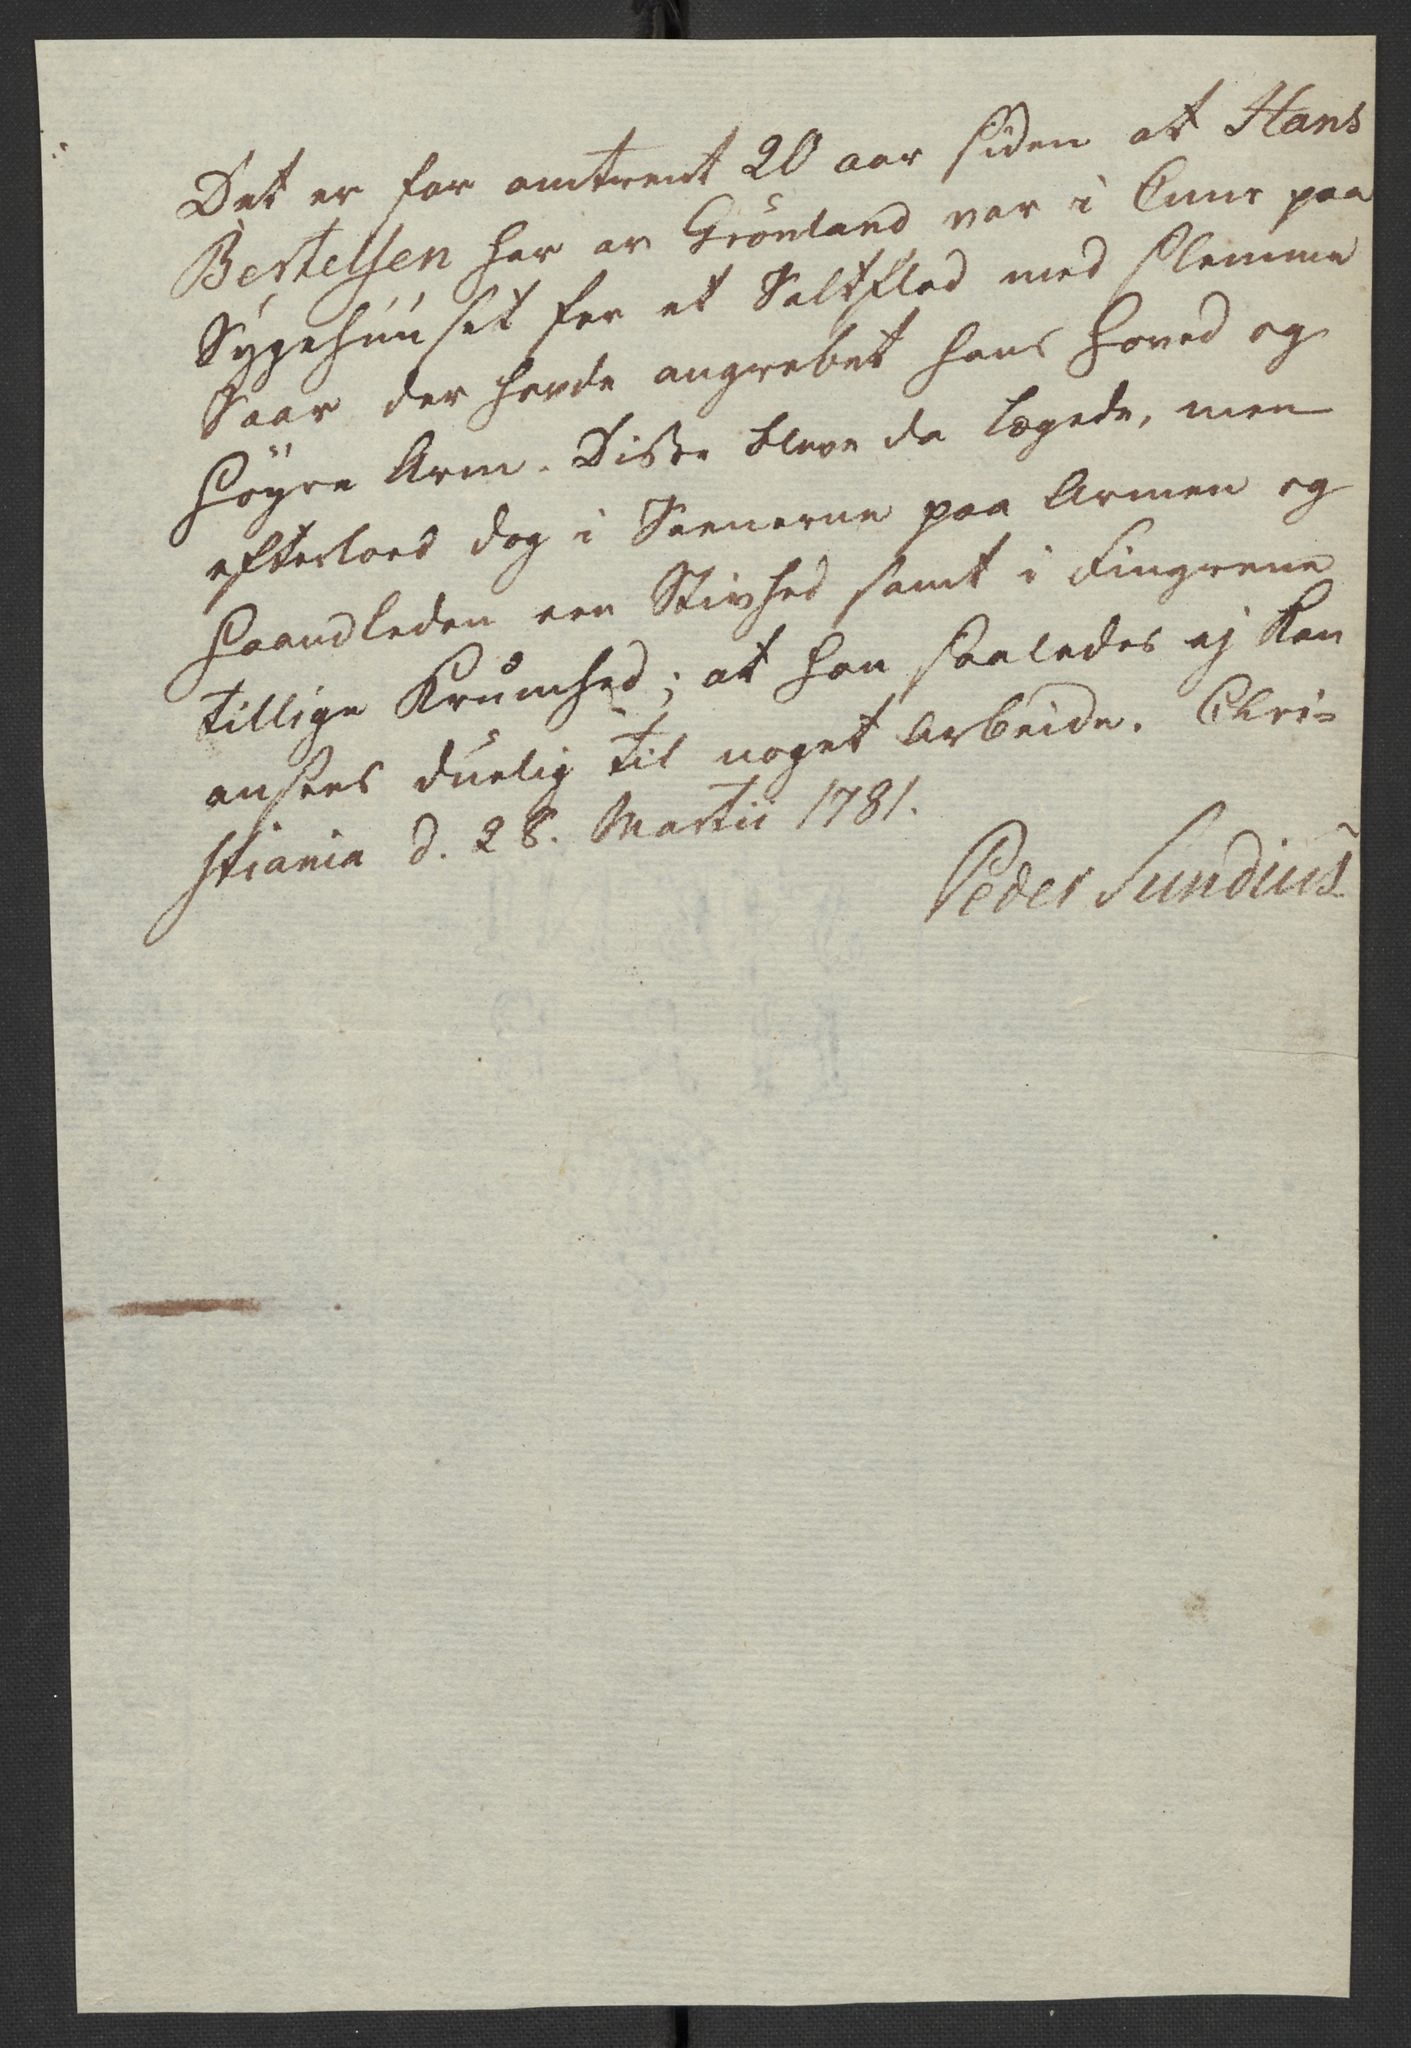 Det er for omtrent 20 aar siden at Hans
Bertelsen her av Grönland var i Cuur paa
Sygehuuset for et Saltflod med slemme
Saar der havde angrebet hans Hoved og
Höyre Arm. Disse bleve da lægede, men
efterloed dog i Seenerne paa Armen og
Haandleden een Stivhed samt i Fingrene
tillige Krumhed; at han saaledes ej kan
ansees duelig til noget Arbeide. Chri=
stiania d. 28. Martii 1781.
Peder Sundius